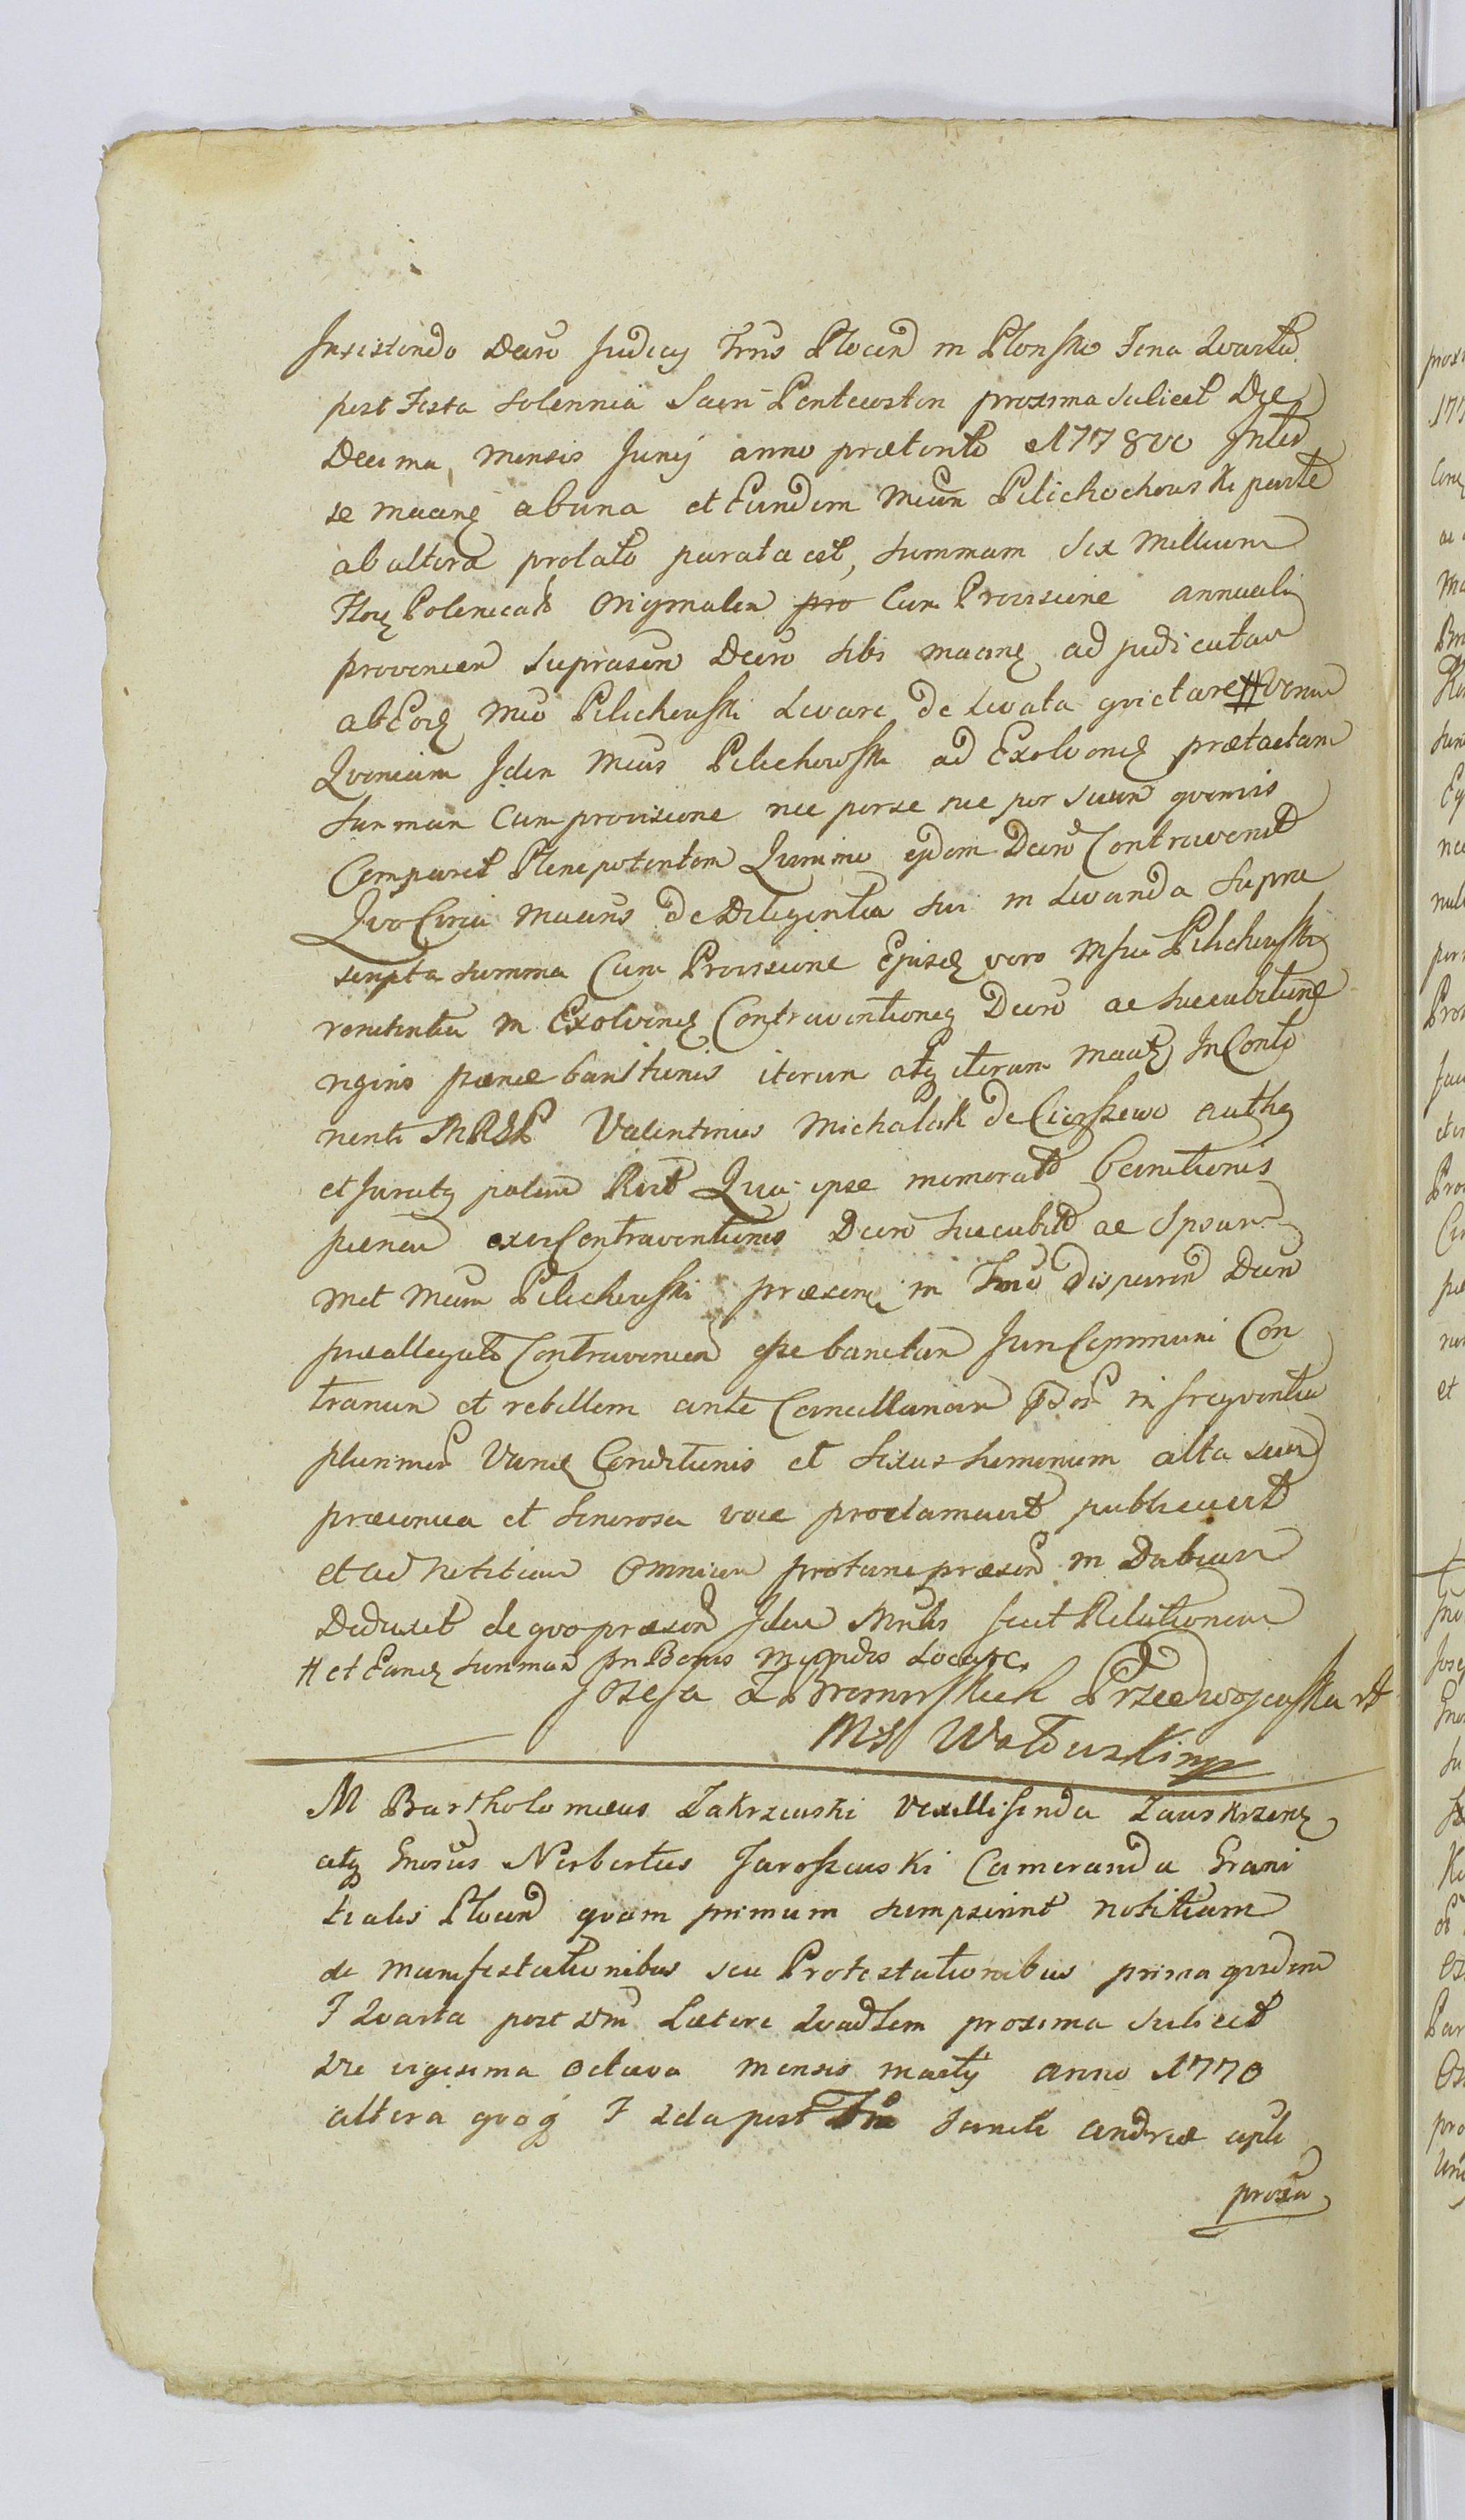 Insistendo Decro Judicij Trris Plocen in Płonsko Feria Quarta
post Festa solennia Sacri Pentecosten proxima scilicet Die
Decima, mensis Junij anno præterito 1778vo Inter
se macne ab una et Eundem Mcum Pilichochowski parte
ab altera prolato parata est, summam sex Millium
Flor Polonical Originalem pro Cum Provisione annuali
provenien suprascrn Decro sibi macne adjudicatam
ab Eod Mco Pilichowski Levare de Levata qvictare # Verum
Qvoniam Idem Mcus Pilichowski ad Exolvone prætactam
Summam Cum provisione nec per se nec per suum qvemvis
Comparet Plenipotentem Qvinimo ejdem Decro Contravenit
Qvo Circa Macns de Diligentia sui in Levanda supra
scripta summa Cum Provisione Ejusd vero Msci Pilichowski
renitentia in Exolvone Contraventione Decro ac succubitione
regine pænæ banitionis iterum atq iterum Maatq In Conti
nenti MRGP Valentinus Michalak de Cierszewo authen
et Juratq palam Rcit Qvia ipse memorato banitionis
pænam ex vi Contraventionis Decro succubito ac Ipsum
met Mcum Pilichowski præsenq in Trrio disparen Decro
præallegato Contravenien esse banitum Juri Communi Con
trarium et rebellem ante Cancellariam in freqventia
plurimor Variæ Conditionis et sexus hominum alta sua
præconica et sonorosa voce proclamavit publicavit
et ad notitiam Omnium protunc præsen in Dubiam
Deduxit de qvo præsen Idem Mnlis fecit Relationem
# et Eande summam In Bonis Mundis Locare
Jozefa z Bromirskich Przedwojewska rt
MS Wołduski mp
M Bartholomæus Zakrzewski Vexilliferida Zawskrzene
atq Gnosus Norbertus Jaroszewski Camerarida Grani
tialis Plocen qvam primum sumpserint notitiam
de Manifestationibus seu Protestationibus prima qvidem
F Quarta post Dm Lætare Quadlem proxima scilicet
Die vigesima Octava mensis martij anno 1770
altera qvoq F 2da post Fm Sancti Andreæ apli
proxia